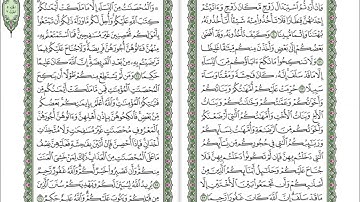 وَإِنْ أَرَدتُّمُ ٱسْتِبْدَالَ زَوْجٍ مَّكَانَ زَوْجٍ وَءَاتَيْتُمْ
إِحْدَىٰهُنَّ قِنطَارًا فَلَا تَأْخُذُوا۟ مِنْهُ شَيْـًٔا أَتَأْخُذُونَهُۥ بُهْتَٰنًا
وَإِثْمًا مُّبِينًا ٢٠ وَكَيْفَ تَأْخُذُونَهُۥ وَقَدْ أَفْضَىٰ بَعْضُكُمْ
إِلَىٰ بَعْضٍ وَأَخَذْنَ مِنكُم مِّيثَٰقًا غَلِيظًا ٢١
وَلَا تَنكِحُوا۟ مَا نَكَحَ ءَابَآؤُكُم مِّنَ ٱلنِّسَآءِ إِلَّا مَا قَدْ
سَلَفَ إِنَّهُۥ كَانَ فَٰحِشَةً وَمَقْتًا وَسَآءَ سَبِيلًا ٢٢
حُرِّمَتْ عَلَيْكُمْ أُمَّهَٰتُكُمْ وَبَنَاتُكُمْ وَأَخَوَٰتُكُمْ
وَعَمَّٰتُكُمْ وَخَٰلَٰتُكُمْ وَبَنَاتُ ٱلْأَخِ وَبَنَاتُ
ٱلْأُخْتِ وَأُمَّهَٰتُكُمُ ٱلَّٰتِىٓ أَرْضَعْنَكُمْ وَأَخَوَٰتُكُم
مِّنَ ٱلرَّضَٰعَةِ وَأُمَّهَٰتُ نِسَآئِكُمْ وَرَبَٰٓئِبُكُمُ
ٱلَّٰتِى فِى حُجُورِكُم مِّن نِّسَآئِكُمُ ٱلَّٰتِى دَخَلْتُم
بِهِنَّ فَإِن لَّمْ تَكُونُوا۟ دَخَلْتُم بِهِنَّ فَلَا جُنَاحَ عَلَيْكُمْ
وَحَلَٰٓئِلُ أَبْنَآئِكُمُ ٱلَّذِينَ مِنْ أَصْلَٰبِكُمْ
وَأَن تَجْمَعُوا۟ بَيْنَ ٱلْأُخْتَيْنِ إِلَّا مَا
قَدْ سَلَفَ إِنَّ ٱللَّهَ كَانَ غَفُورًا رَّحِيمًا
وَٱلْمُحْصَنَٰتُ مِنَ ٱلنِّسَآءِ إِلَّا مَا مَلَكَتْ أَيْمَٰنُكُمْ
كِتَٰبَ ٱللَّهِ عَلَيْكُمْ وَأُحِلَّ لَكُم مَّا وَرَآءَ ذَٰلِكُمْ أَن تَبْتَغُوا۟
بِأَمْوَٰلِكُم مُّحْصِنِينَ غَيْرَ مُسَٰفِحِينَ فَمَا ٱسْتَمْتَعْتُم بِهِۦ
مِنْهُنَّ فَـَٔاتُوهُنَّ أُجُورَهُنَّ فَرِيضَةً وَلَا جُنَاحَ عَلَيْكُمْ
فِيمَا تَرَٰضَيْتُم بِهِۦ مِنۢ بَعْدِ ٱلْفَرِيضَةِ إِنَّ ٱللَّهَ كَانَ عَلِيمًا
حَكِيمًا ٢٤ وَمَن لَّمْ يَسْتَطِعْ مِنكُمْ طَوْلًا أَن يَنكِحَ
ٱلْمُحْصَنَٰتِ ٱلْمُؤْمِنَٰتِ فَمِن مَّا مَلَكَتْ أَيْمَٰنُكُم
مِّن فَتَيَٰتِكُمُ ٱلْمُؤْمِنَٰتِ وَٱللَّهُ أَعْلَمُ بِإِيمَٰنِكُم بَعْضُكُم
مِّنۢ بَعْضٍ فَٱنكِحُوهُنَّ بِإِذْنِ أَهْلِهِنَّ وَءَاتُوهُنَّ أُجُورَهُنَّ
بِٱلْمَعْرُوفِ مُحْصَنَٰتٍ غَيْرَ مُسَٰفِحَٰتٍ وَلَا مُتَّخِذَٰتِ
أَخْدَانٍ فَإِذَآ أُحْصِنَّ فَإِنْ أَتَيْنَ بِفَٰحِشَةٍ فَعَلَيْهِنَّ نِصْفُ
مَا عَلَى ٱلْمُحْصَنَٰتِ مِنَ ٱلْعَذَابِ ذَٰلِكَ لِمَنْ خَشِىَ ٱلْعَنَتَ
مِنكُمْ وَأَن تَصْبِرُوا۟ خَيْرٌ لَّكُمْ وَٱللَّهُ غَفُورٌ رَّحِيمٌ
٢٥ يُرِيدُ ٱللَّهُ لِيُبَيِّنَ لَكُمْ وَيَهْدِيَكُمْ سُنَنَ ٱلَّذِينَ
مِن قَبْلِكُمْ وَيَتُوبَ عَلَيْكُمْ وَٱللَّهُ عَلِيمٌ حَكِيمٌ